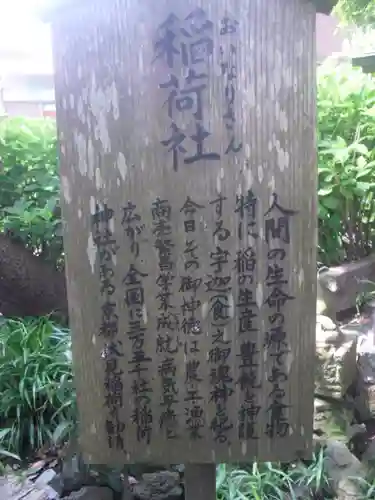 稲荷社
おいなりさん
人間の生命の源である食物
特に、稲の生産、豊穣を神格
する宇迦(食)之御魂神を祀る。
今日その御神徳は、農・工・漁業
商売繁昌学業成就、病気平癒と
広がり、全国に三万五千社の稲荷
神社のある京都伏見稲荷の勧請